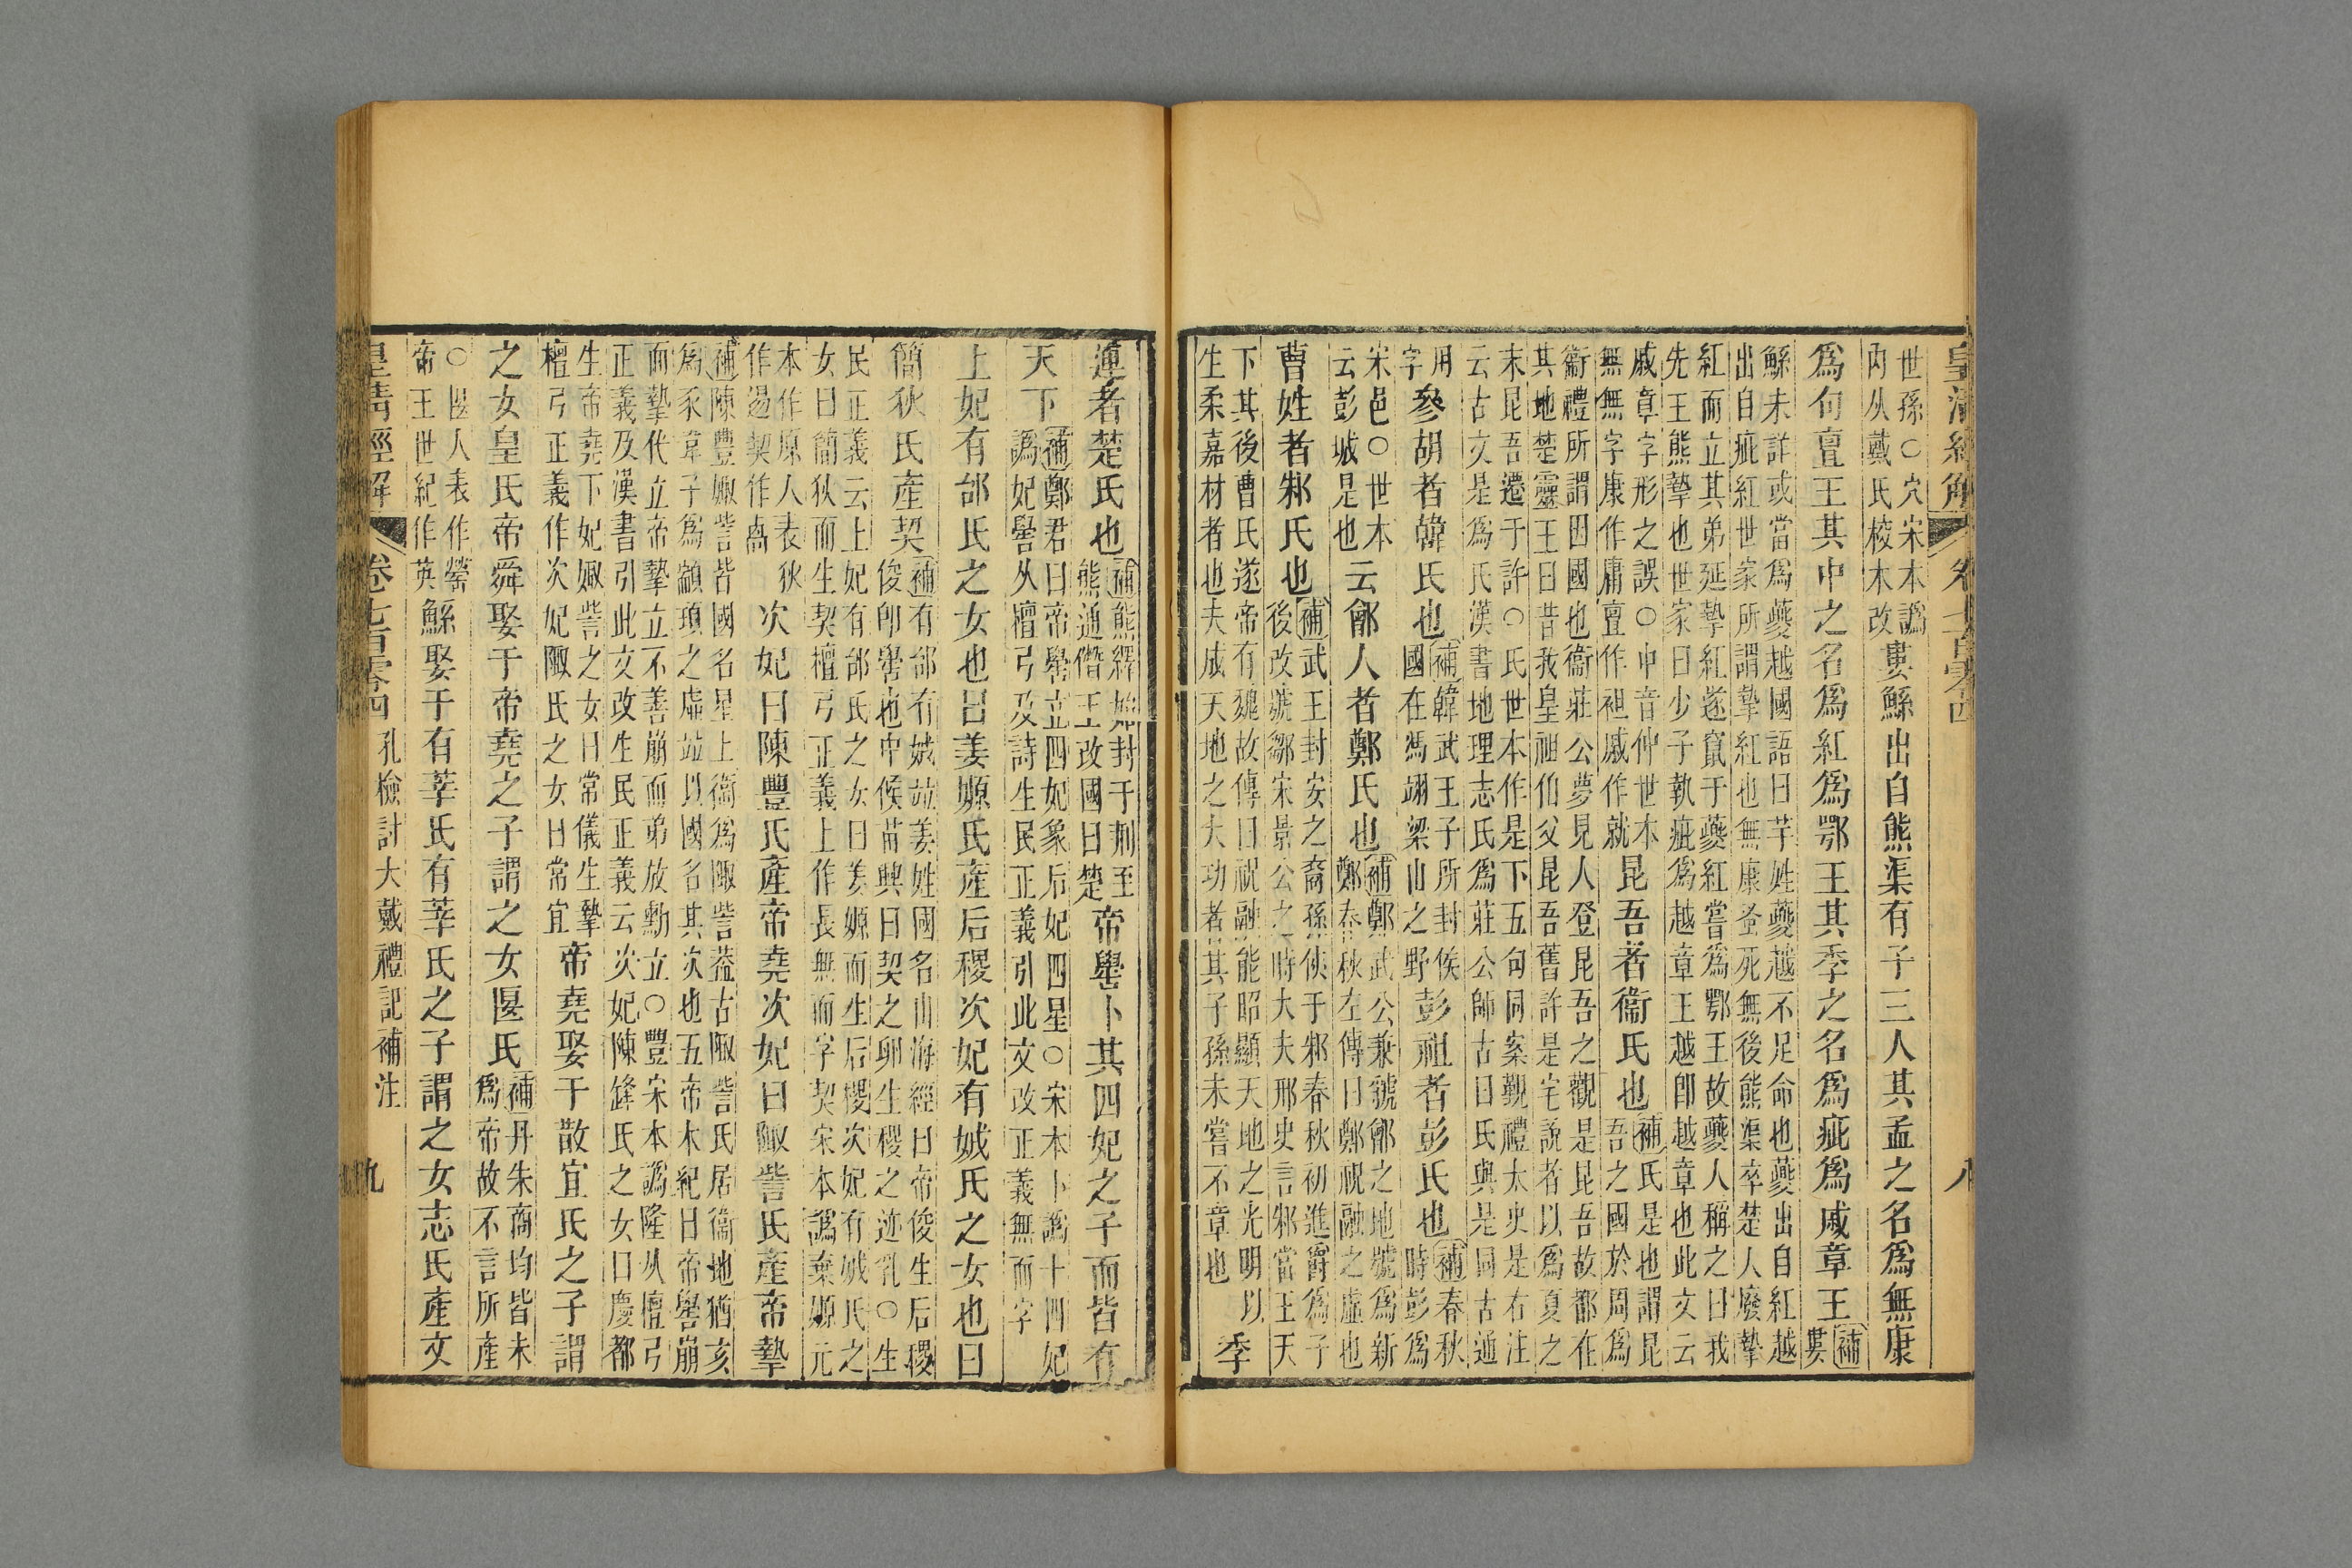 皇清經解 卷七百零四 八
世孫○穴宋本譌
内从戴氏校本改婁鯀出自熊渠有子三人其孟之名爲無康
爲句亶王其中之名爲紅爲鄂王其季之名爲疵爲戚章王補
婁
鯀未詳或當爲䕫越國語曰芊姓䕫越不足命也䕫出自紅越
出自疵紅世家所謂摯紅也無康蚤死無後熊渠卒楚人廢摯
紅而立其弟延摯紅遂竄于䕫紅嘗爲鄂王故䕫人稱之曰我
先王熊摯也世家曰少子執疵爲越章王越卽越章也此文云
戚章字形之誤○中音仲世本
無無字康作庸亶作袒戚作就昆吾者衞氏也補氏是也謂昆
吾之國於周爲
衞禮所謂因國也衞莊公夢見人登昆吾之觀是昆吾故都在
其地楚靈王曰昔我皇祖伯父昆吾舊許是宅說者以爲夏之
末昆吾遷于許○氏世本作是下五句同案覲禮太史是右注
云古文是爲氏漢書地理志氏爲莊公師古曰氏與是同古通
用
字參胡者韓氏也補韓武王子所封候
國在馮翊梁山之野彭祖者彭氏也補春秋
時彭爲
宋邑○世本
云彭城是也云鄶人者鄭氏也補鄭武公兼虢鄶之地號爲新
鄭春秋左傳曰鄭祝融之虛也
曹姓者邾氏也補武王封安之裔孫俠于邾春秋初進爵爲子
後改號鄒宋景公之時大夫邢史言邾當王天
下其後曹氏遂帝有魏故傳曰祝融能昭顯天地之光明以
生柔嘉材者也夫成天地之大功者其子孫未嘗不章也季
連者楚氏也補熊繹始封于荆至
熊通僭王改國曰楚帝嚳卜其四妃之子而皆有
天下補鄭君曰帝嚳立四妃象后妃四星○宋本卜譌十四妃
譌妃嚳从檀弓及詩生民正義引此文改正義無而字
上妃有邰氏之女也曰姜嫄氏產后稷次妃有娀氏之女也曰
簡狄氏產契補有邰有娀竝姜姓國名山海經曰帝俊生后稷
俊卽嚳也中候苗興曰契之卵生稷之迹乳○生
民正義云上妃有邰氏之女曰姜嫄而生后稷次妃有娀氏之
女曰簡狄而生契檀弓正義上作長無而字契宋本譌棄嫄元
本作原人表狄
作逷契作卨次妃曰陳豐氏產帝堯次妃曰陬訾氏產帝摯
補陳豐娵訾皆國名星上衞爲陬訾葢古陬訾氏居衞地猶亥
爲豕韋子爲顓頊之虛竝以國名其次也五帝本紀曰帝嚳崩
而摯代立帝摯立不善崩而弟放勳立○豐宋本譌隆从檀弓
正義及漢書引此文改生民正義云次妃陳鋒氏之女曰慶都
生帝堯下妃娵訾之女曰常儀生摯
檀弓正義作次妃陬氏之女曰常宜帝堯娶于散宜氏之子謂
之女皇氏帝舜娶于帝堯之子謂之女匽氏補丹朱商均皆未
爲帝故不言所產
○匽人表作罃
帝王世紀作英鯀娶于有莘氏有莘氏之子謂之女志氏產文
皇清經解 卷七百零四 孔檢討大戴禮記補注 九